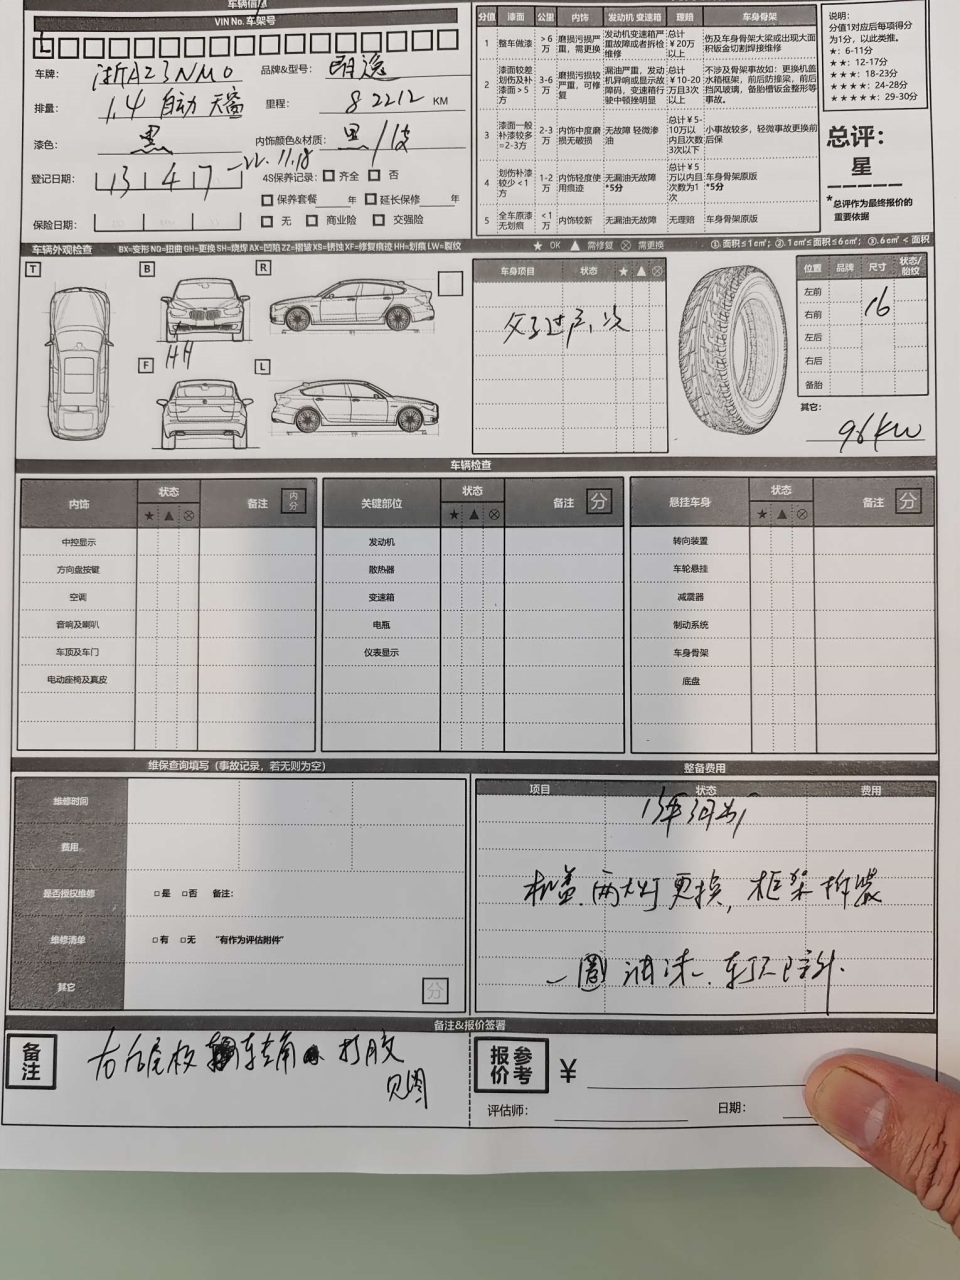 车辆信息
VIN No. 车架号
车牌: 浙A23NM0 品牌&型号: 朗逸
排量: 1.4 自动 天窗 里程: 82212 KM
漆色: 黑 内饰颜色&材质: 黑/皮
登记日期: 13 4 17 -22.11.18 4S保养记录: 齐全 否
保养套餐 年 延长保修 年
保险日期: 无 商业险 交强险
分值 漆面 公里 内饰 发动机 变速箱 理赔 车身骨架
1 整车做漆 >6万 磨损污损严重,需更换 发动机变速箱严重故障或者拆检维修 总计¥20万以上 伤及车身骨架大梁或出现大面积钣金切割焊接维修
2 漆面较差划伤及补漆面>5方 3-6万 磨损污损较严重,可修复 漏油严重,发动机异响或显示故障码,变速箱行驶中顿挫明显 总计¥10-20万且3次以上 不涉及骨架事故如:更换机盖水箱框架,前后防撞梁,前后挡风玻璃,备胎槽钣金整形等事故。
3 漆面一般补漆较多=2-3方 2-3万 内饰中度磨损无破损 无故障 轻微渗油 总计¥5-10万以内且次数3次以下 小事故较多,轻微事故更换前后保
4 划伤补漆较少<1方 1-2万 内饰轻度使用痕迹 无漏油无故障*5分 总计¥5万以内且次数为1次 车身骨架原版*5分
5 全车原漆无划痕 <1万 内饰较新 无漏油无故障 无理赔 车身骨架原版
说明:
分值1对应后每项得分为1分,以此类推。
★: 6-11分
★★: 12-17分
★★★: 18-23分
★★★★: 24-28分
★★★★★: 29-30分
总评:
星
*总评作为最终报价的重要依据
车辆外观检查 BX=变形 NQ=扭曲 GH=更换 SH=烧焊 AX=凹陷 ZZ=褶皱 XS=锈蚀 XF=修复痕迹 HH=划痕 LW=裂纹 ★ OK ▲ 需修复 ⊗ 需更换 ①.面积≤1c㎡; ②.1c㎡≤面积≤6c㎡; ③.6c㎡<面积
T B R
HH
F L
车身项目 状态 ★ ▲ ⊗
父子过户1次
位置 品牌 尺寸 状态/胎纹
左前
右前 16
左后
右后
备胎
其它:
96KW
车辆检查
内饰 状态 备注 内分 关键部位 状态 备注 分 悬挂车身 状态 备注 分
★ ▲ ⊗ ★ ▲ ⊗ ★ ▲ ⊗
中控显示 发动机 转向装置
方向盘按键 散热器 车轮悬挂
空调 变速箱 减震器
音响及喇叭 电瓶 制动系统
车顶及车门 仪表显示 车身骨架
电动座椅及真皮 底盘
维保查询填写(事故记录,若无则为空) 整备费用
项目 状态 费用
维修时间
13年3月出厂
费用
是否授权维修 是 否 备注:
机盖.两大灯更换,框架拆装
维修清单 有 无 "有作为评估附件"
其它 分
一圈油漆.车顶除外.
备注&报价签署
备注
右后尾板 转角 打胶
见图
参考报价 ¥
评估师: 日期: